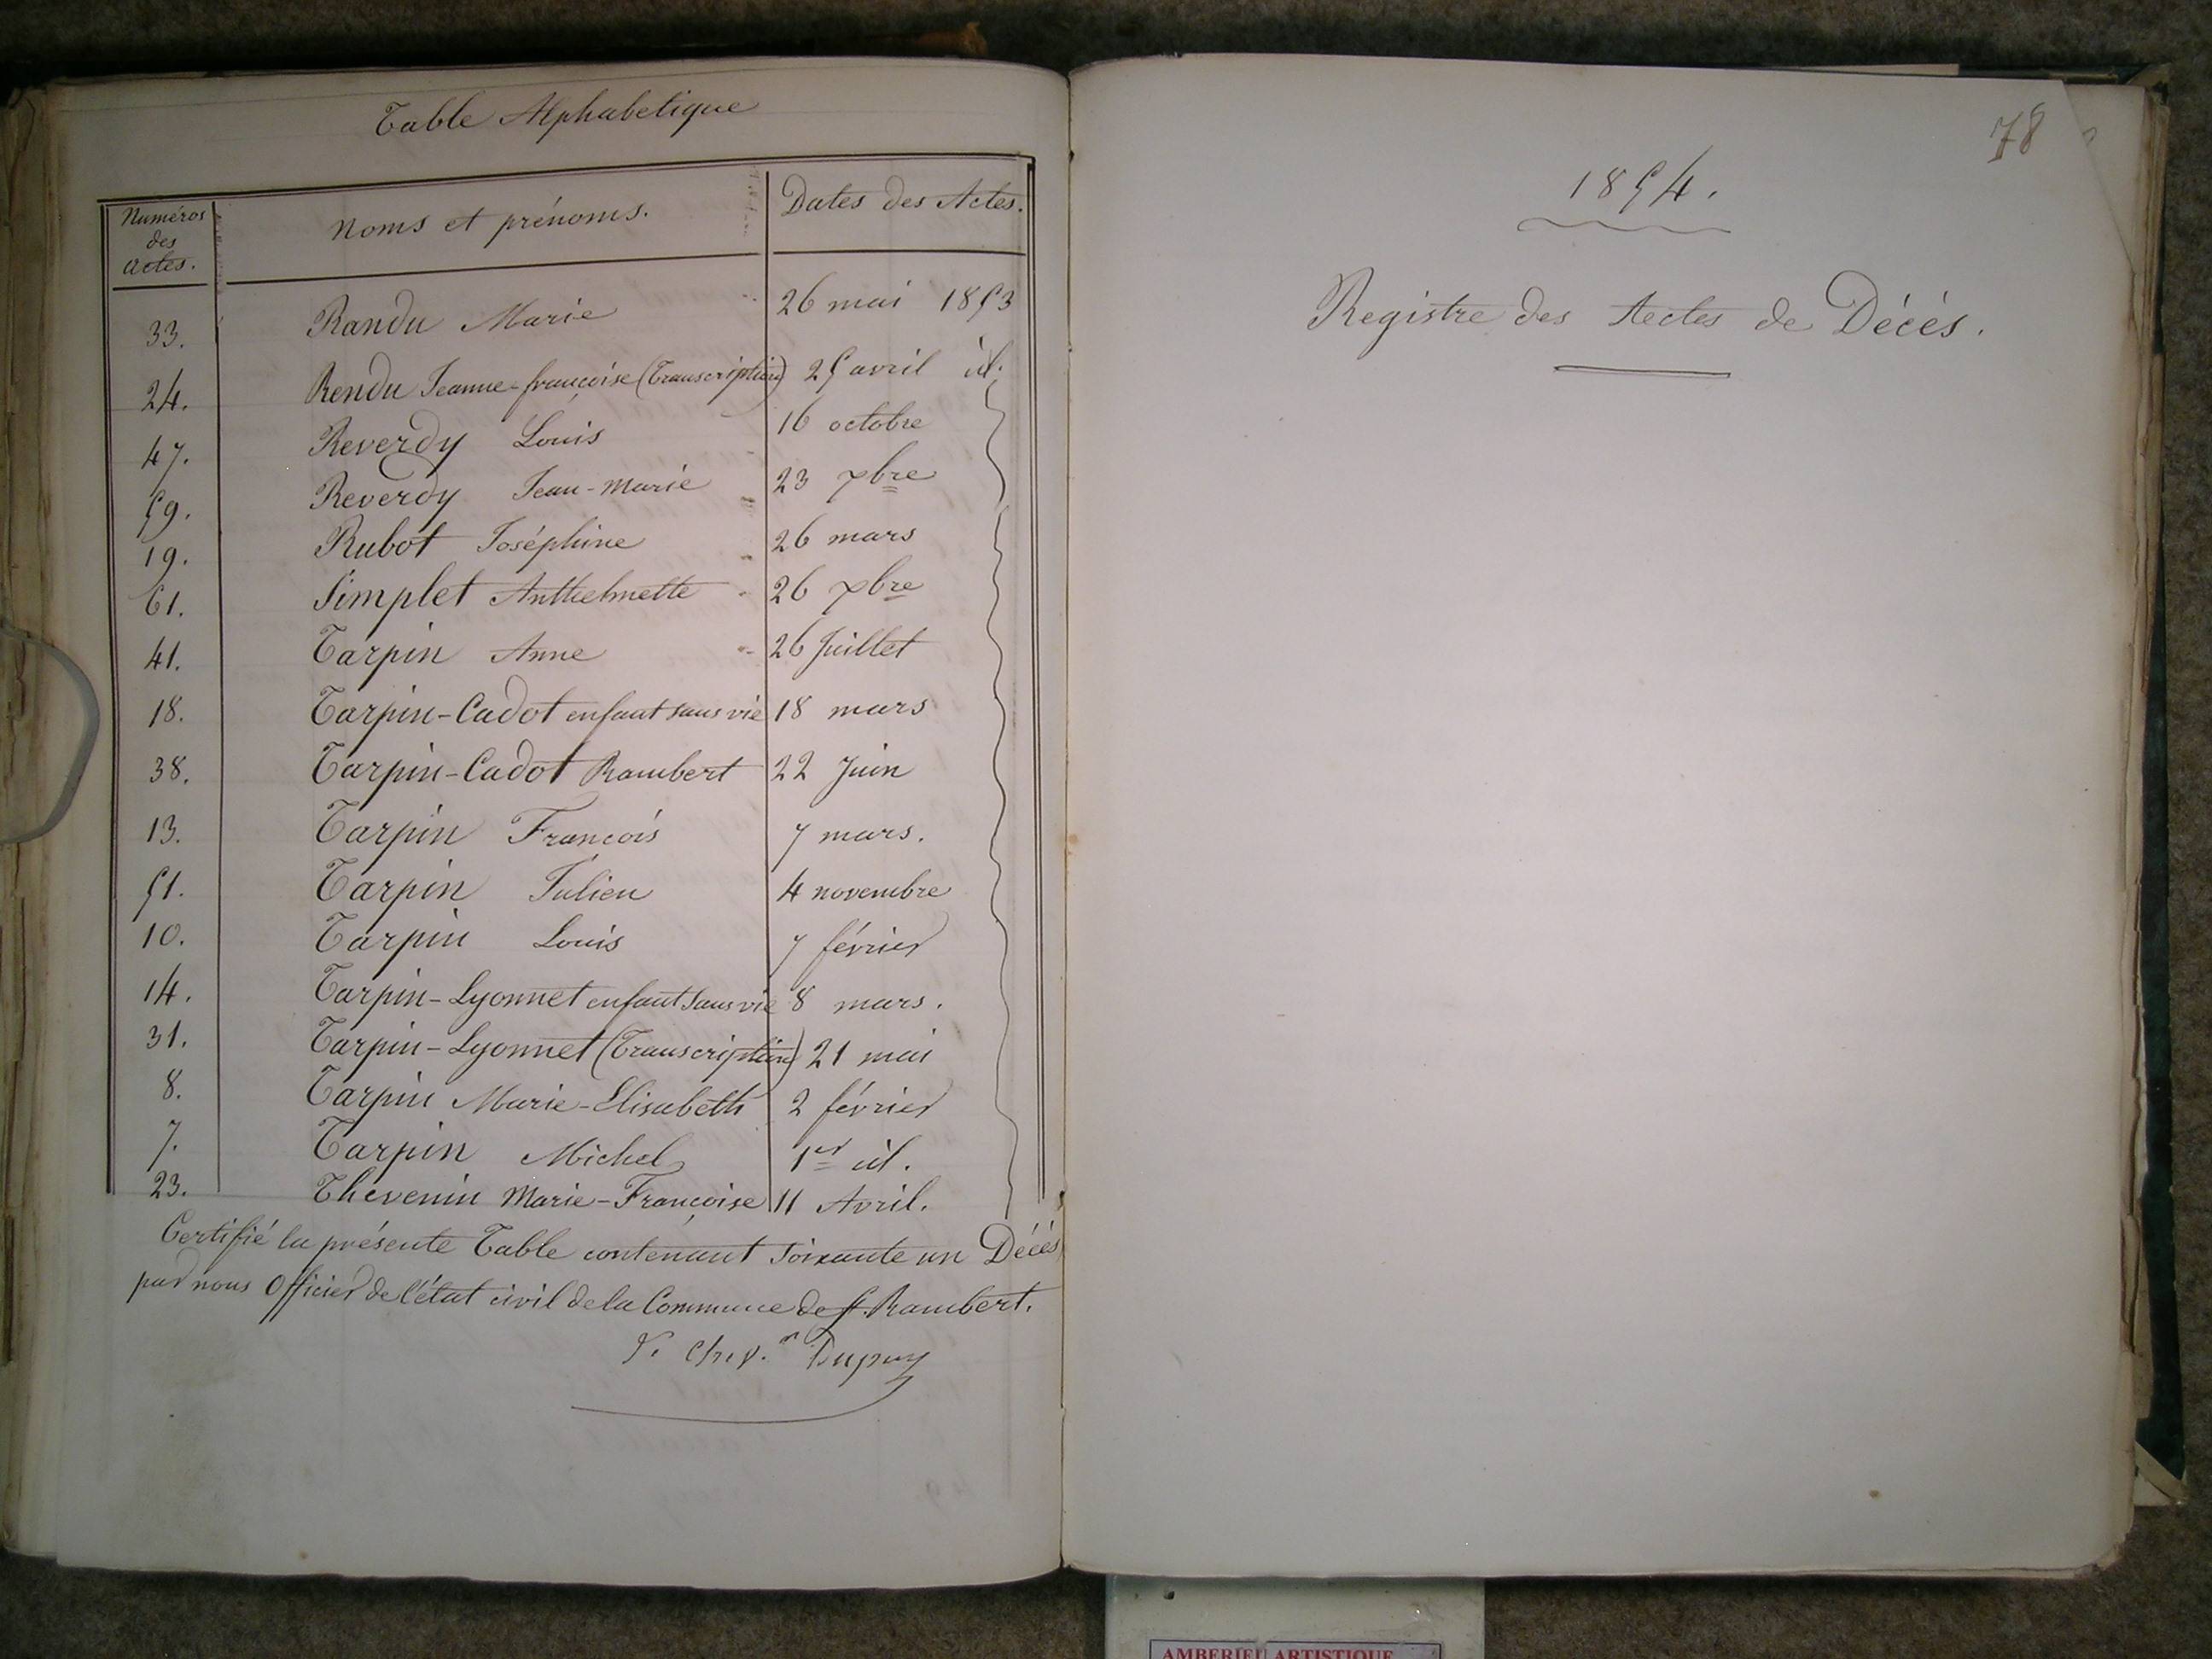 Table Alphabetique
Numéros des actes. Noms et prénoms. Dates des Actes.
33. Randu Marie 26 mai 1853
24. Rendu Jeanne-françoise (Transcription) 25 avril id.
47. Reverdy Louis 16 octobre
59. Reverdy Jean-Marie 23 xbre
19. Rubot Joséphine 26 mars
61. Simplet Anthelmette 26 xbre
41. Tarpin Anne 26 Juillet
18. Tarpin-Cadot enfant sans vie 18 mars
38. Tarpin-Cadot Rambert 22 Juin
13. Tarpin François 7 mars.
51. Tarpin Julien 4 novembre
10. Tarpin Louis 7 février
14. Tarpin-Lyonnet enfant sans vie 8 mars.
31. Tarpin-Lyonnet (Transcription) 21 mai
8. Tarpin Marie-Elisabeth 2 février
7. Tarpin Michel 1er id.
23. Thevenin Marie-Françoise 11 Avril.
Certifié la présente Table contenant soixante un Décés
par nous Officier de l'état civil de la Commune de St. Rambert.
Dupuy
78
1854.
Registre des Actes de Décés.
AMBERIEU ARTISTIQUE